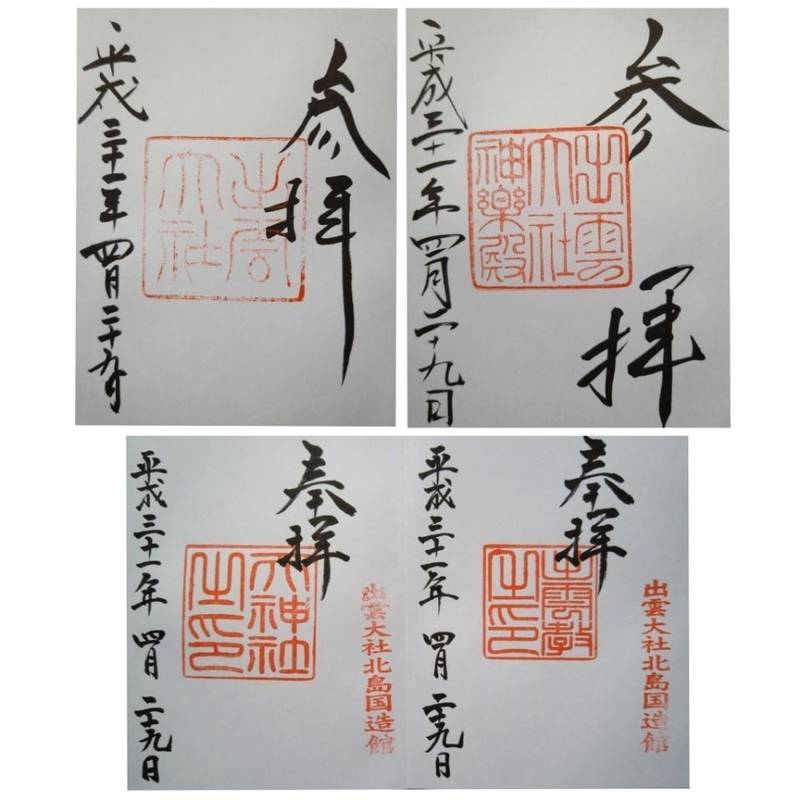 参拝
出雲
大社
平成三十一年四月二十九日
参拝
出雲
大社
神楽殿
平成三十一年四月二十九日
奉拝
出雲大社北島国造館
大神社
之印
平成三十一年四月二十九日
奉拝
出雲大社北島国造館
出雲教
之印
平成三十一年四月二十九日